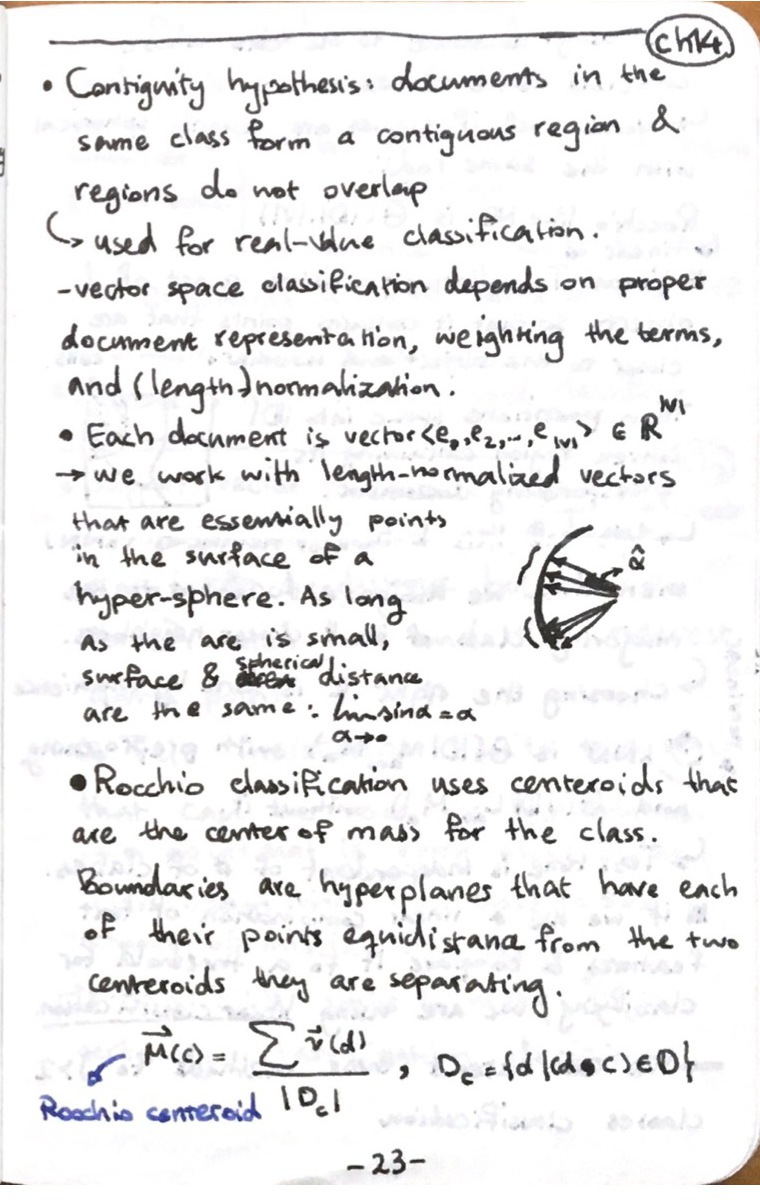 ch14
• Contiguity hypothesis: documents in the
same class form a contiguous region &
regions do not overlap
↳ used for real-value classification.
-vector space classification depends on proper
document representation, weighting the terms,
and (length) normalization.
• Each document is vector <e₀,e₂,..,e|v|> ∈ ℝ^|V|
→ we work with length-normalized vectors
that are essentially points
in the surface of a
hyper-sphere. As long
as the are is small,
surface & spherical distance
are the same: lim sinα = α
α→0
α̂
• Rocchio classification uses centeroids that
are the center of mass for the class.
Boundaries are hyperplanes that have each
of their points equidistance from the two
centeroids they are separating.
μ⃗(c) = ∑ v⃗(d) / |D_c| , D_c = {d | (d, c) ∈ D}
Rocchio centeroid
-23-